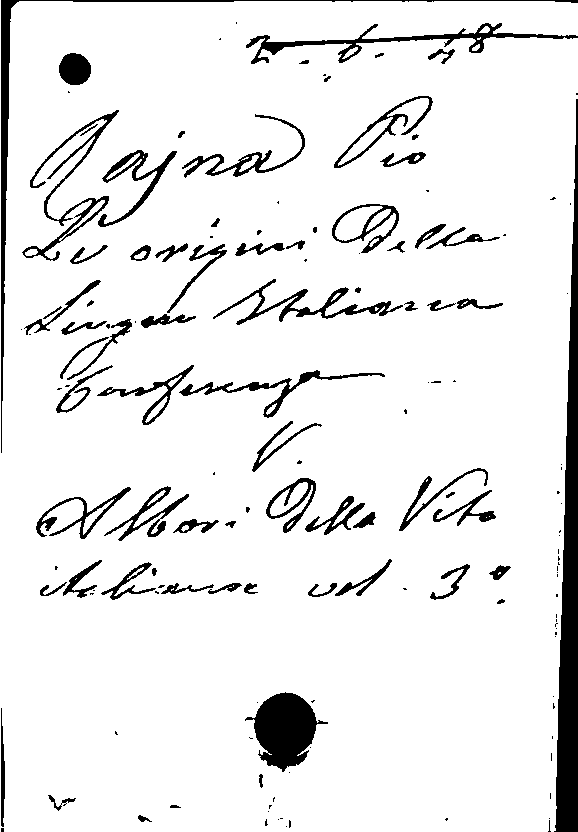 2. 6. 48
Rajna Pio
Le origini Della
Lingua Italiana
Conferenza
V.
Albori della Vita
italiana vol. 3º.